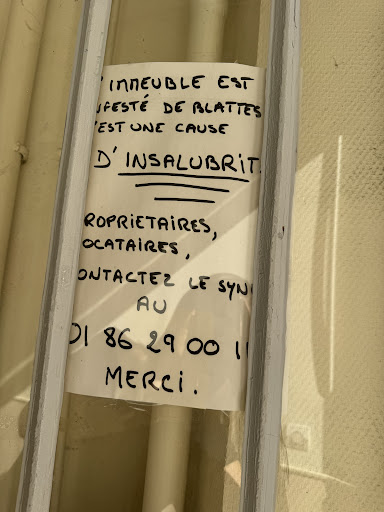 L'IMMEUBLE EST
INFESTÉ DE BLATTES
C'EST UNE CAUSE
D'INSALUBRIT
ROPRIETAIRES,
OCATAIRES,
ONTACTEZ LE SYN
AU
01 86 29 00 1
MERCI.